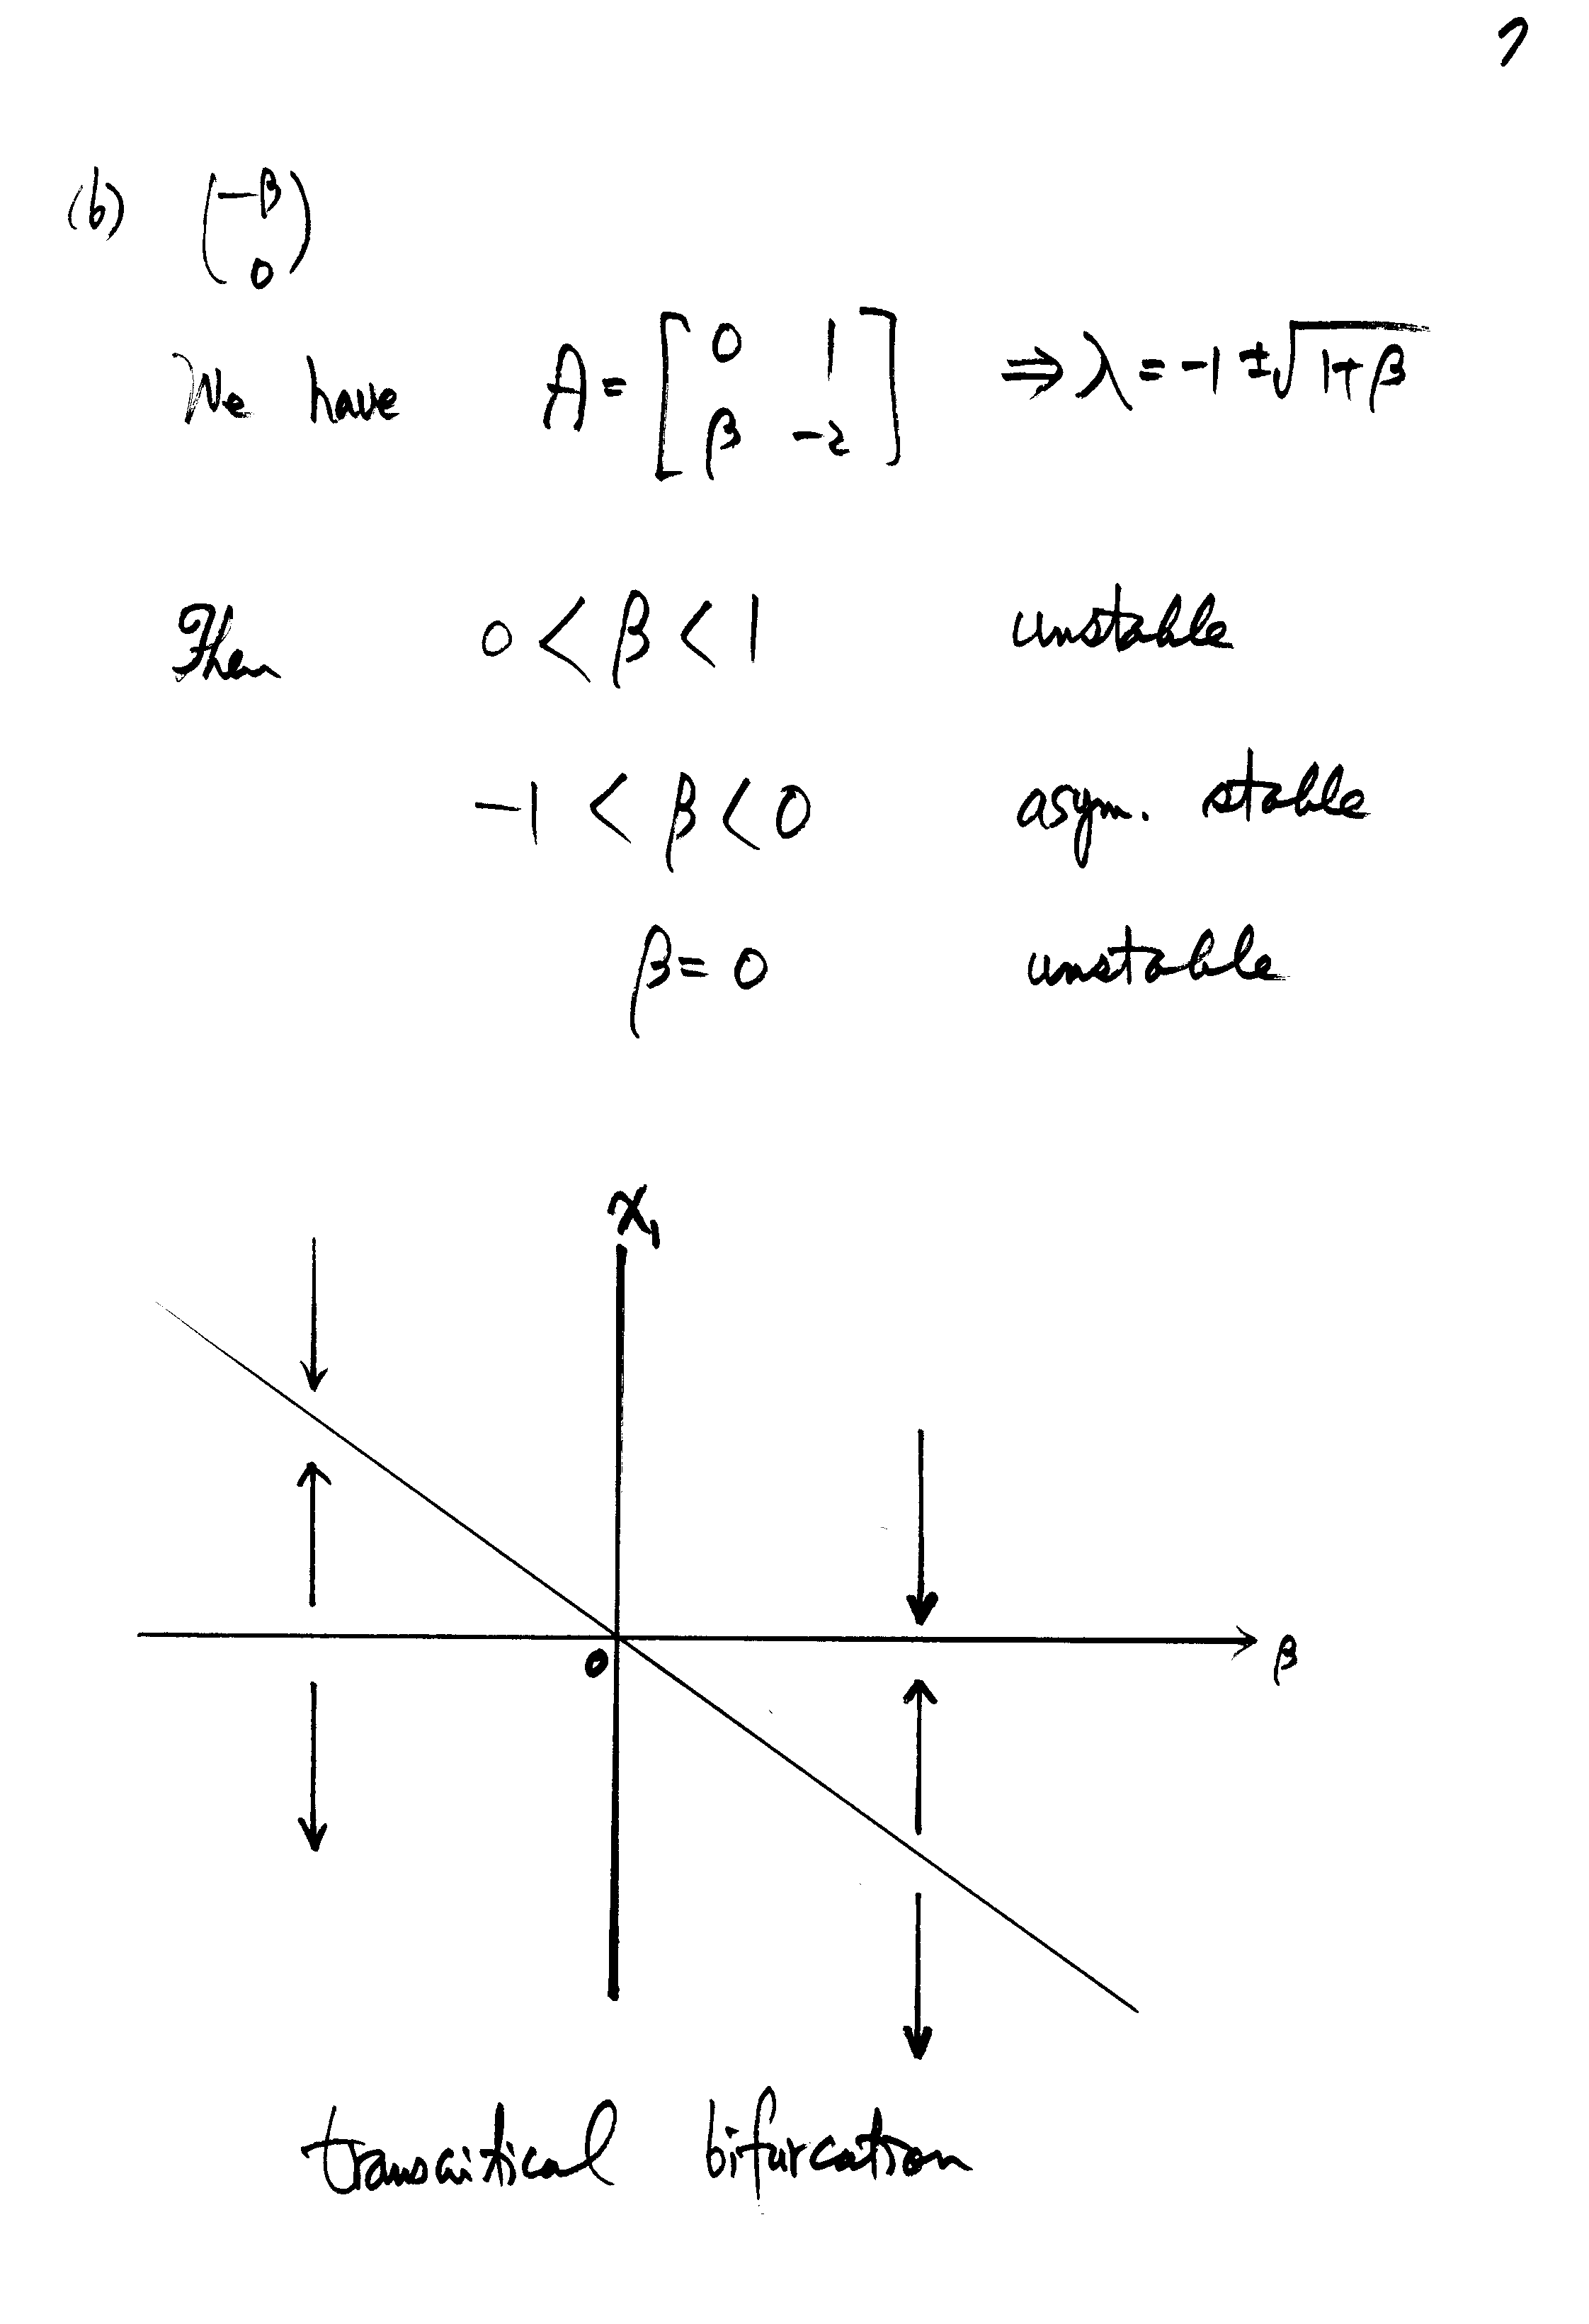 7
(b) (-β
0)
We have A = [0 1
β -2] ⇒ λ = -1 ± √1+β
Then 0 < β < 1 unstable
-1 < β < 0 asym. stable
β = 0 unstable
x₁
0
β
transcritical bifurcation